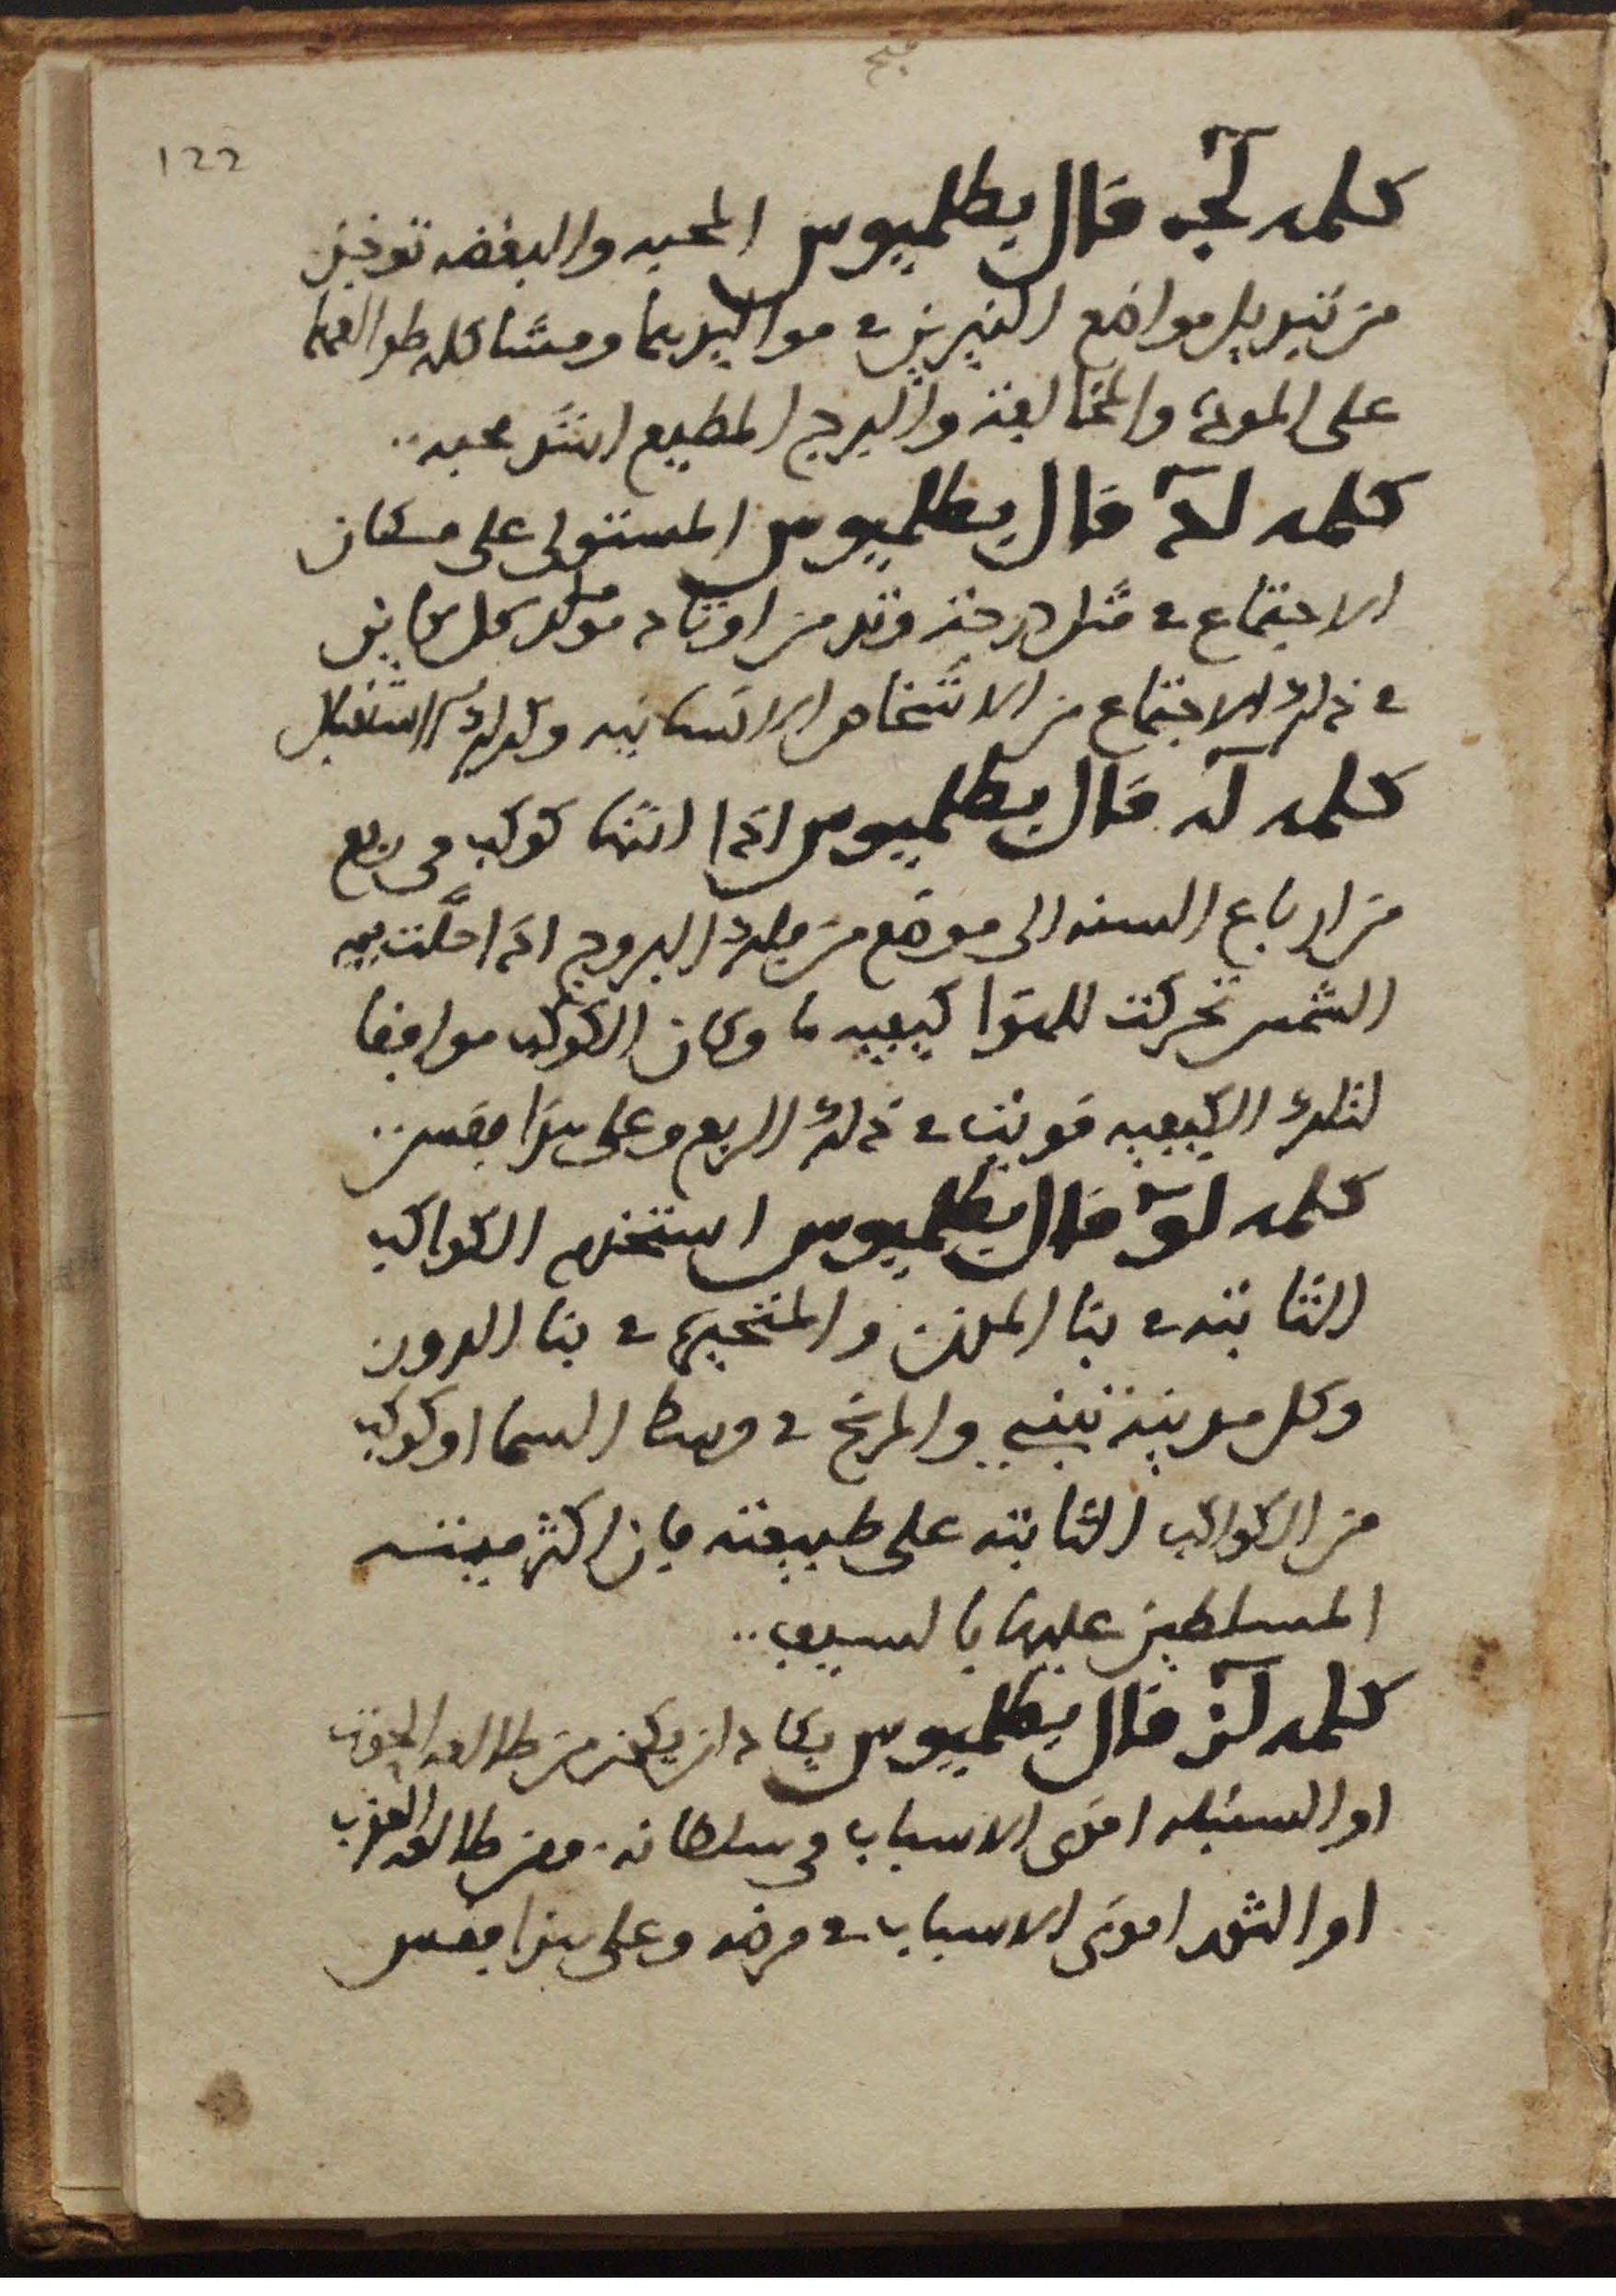 122
كلمه لجـ قال بطلميوس المحبه والبغضه توخذ
من تبديل مواضع النيرين في مواليدهما ومشاكله طوالعهما
على الموده والمخالفة والبرج المطيع اشد محبه
كلمه لد قال بطلميوس المستولى على مكان
الاجتماع في مثل درجة وتد من اوتاد مولد كل كاين
في ذلك الاجتماع من الاشخاص الانسانيه وكذلك الاستقبال
كلمه له قال بطلميوس اذا انتها كوكب في ربع
من ارباع السنه الى موضع من فلك البروج اذا حلت فيه
الشمس تحركت للهوا كيفيه ما وكان الكوكب موافقا
لتلك الكيفيه قويت في ذلك الربع وعلى هذا فقس
كلمه لو قال بطلميوس استخدم الكواكب
الثابته في بنا المدن والمتحيره في بنا الدور
وكل مدينة تبنى والمريخ في وسط السما او كوكب
من الكواكب الثابته على طبيعته فان اكثر ميتته
المسلطين عليها بالسيف
كلمه لز قال بطلميوس يكاد ان يكون من طالعه الحوت
او السنبله اقوى الاسباب في سلطانه ومن طالعه العقرب
او الثور اقوى الاسباب في مرضه وعلى هذا فقس